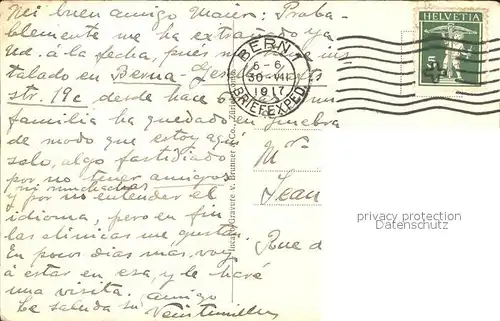 Mi buen amigo Maier: Proba-
blemente me ha extrañado ya
Ud. á la fecha, pues me
talado en Berna-
str. 19c desde hace 6
familia ha quedado en Ginebra
de modo que estoy aquí
solo, algo fastidiado
por no tener amigos
ni muchachas
y por no entender el
idioma, pero en fin
las clínicas me gustan.
En pocos dias mas, voy
á estar en esa, y le haré
una visita.
Le saluda su amigo
BERN 1
5-6
30 VI
1917
BRIEFEXPED.
HELVETIA
5
Incavo-Gravure v. Brunner & Co., Zürich
Mr
Jean
Rue d
privacy protection
Datenschutz